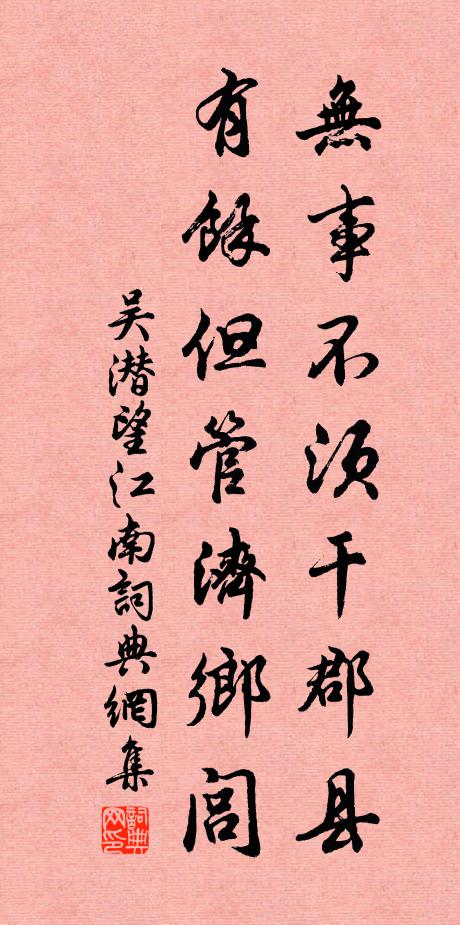 無事不須干郡县
有餘但管濟鄉闾
吴潜望江南詞典網集
詞典網印